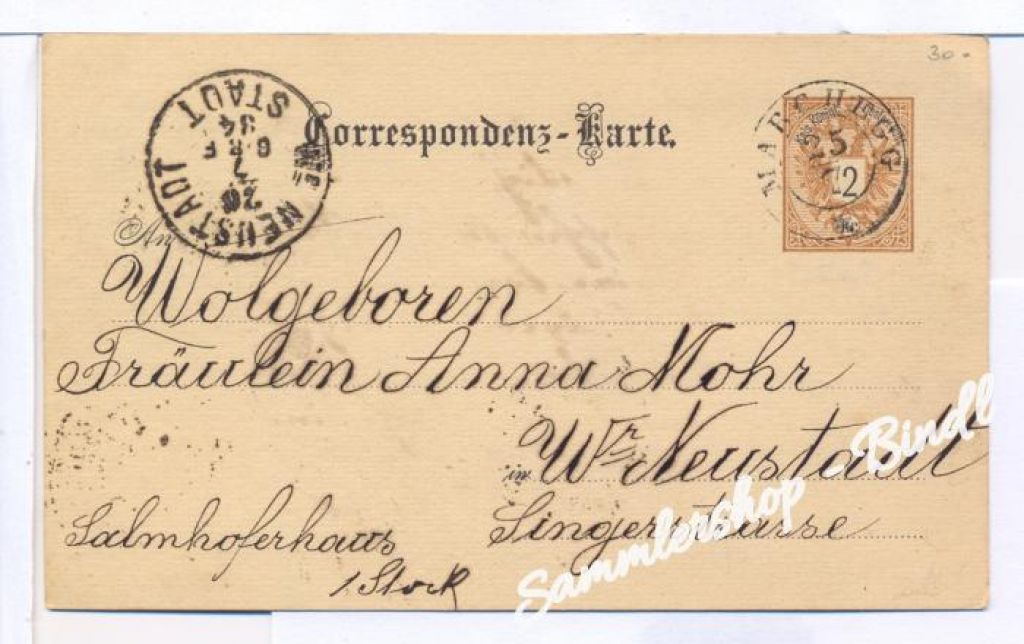 30.-
Correspondenz-Karte.
MARCHEGG
5
12
NEUSTADT
STADT
84
7
26
An
Wolgeboren
Fräulein Anna Mohr
in Wr. Neustadt
Singerstrasse
Salmhoferhaus
1 Stock
Sammlershop - Bindl